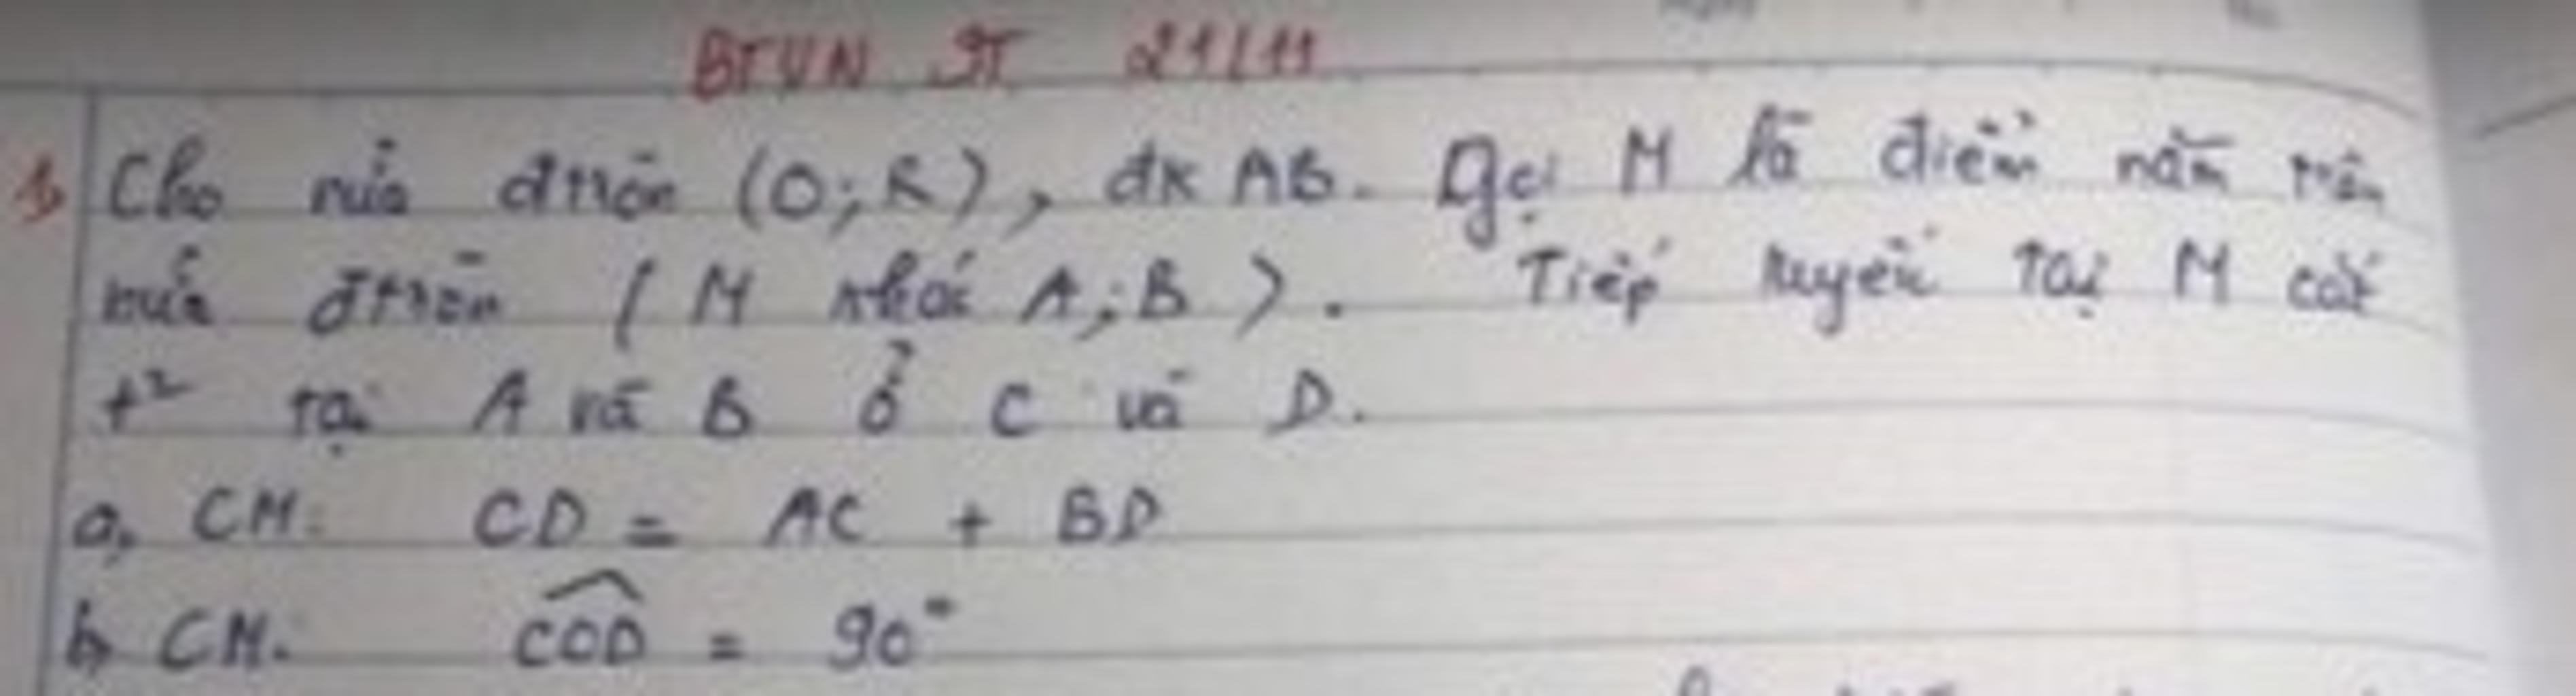 BTVN 9T 21/11
1, Cho nửa đtròn (O;R), đk AB. Gọi M là điểm nằm trên
nửa đtròn (M khác A;B). Tiếp tuyến tại M cắt
t² tại A và B ở C và D.
a, CM: CD = AC + BD
b, CM: \widehat{COD} = 90°